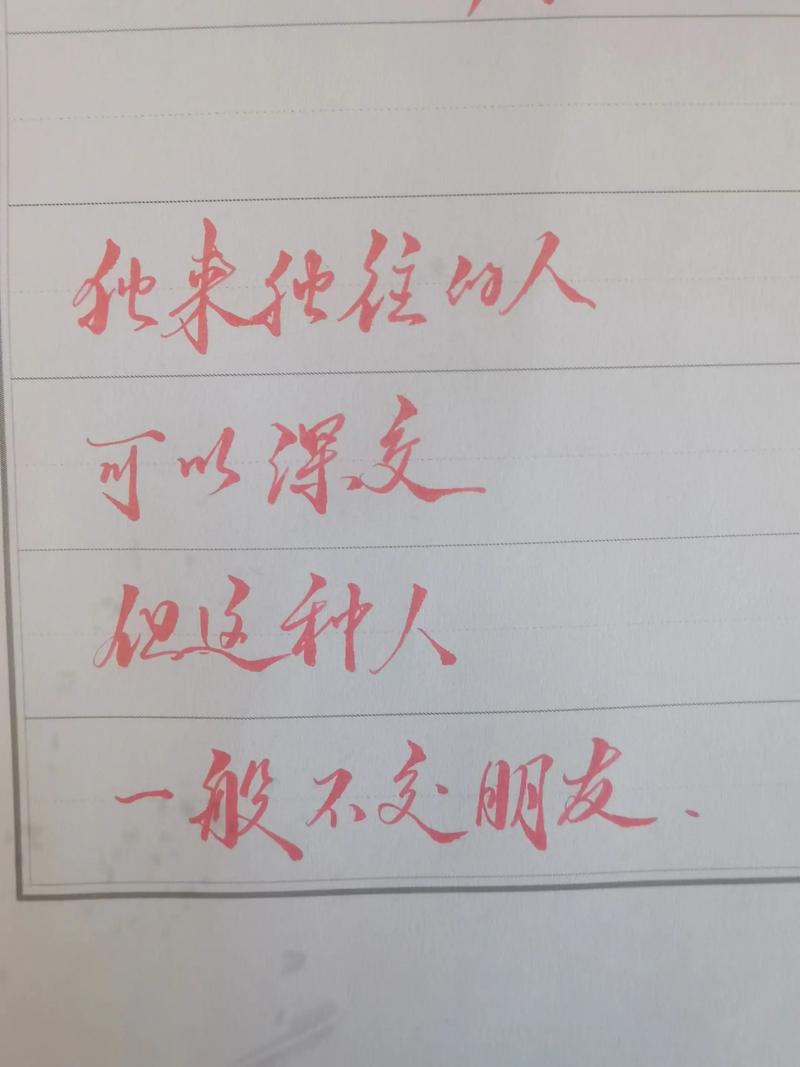 独来独往的人
可以深交
但这种人
一般不交朋友.